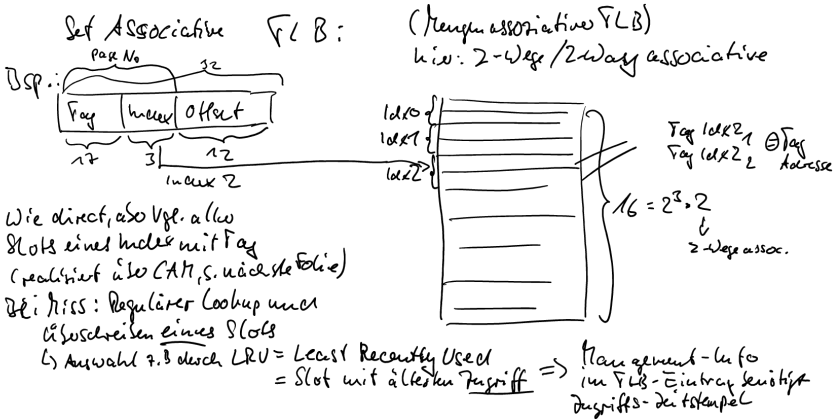 Set Associative TLB:
(Mengenassoziativer TLB)
hier: 2-Wege/2-Way associative
Page No
32
Bsp.:
Tag Index Offset
17 3 12
Index 2
Idx0
Idx1
Idx2
Tag Idx2₁
Tag Idx2₂
= Tag Adresse
16 = 2³ · 2
2-Wege assoc.
Wie direct, aber Vgl. aller
Slots eines Index mit Tag
(realisiert über CAM, s. nächste Folie)
Bei Miss: Regulärer Lookup und
überschreiben eines Slots
↳ Auswahl z.B durch LRU = Least Recently Used
= Slot mit ältesten Zugriff
=> Management-Info
im TLB-Eintrag benötigt
Zugriffs-Zeitstempel